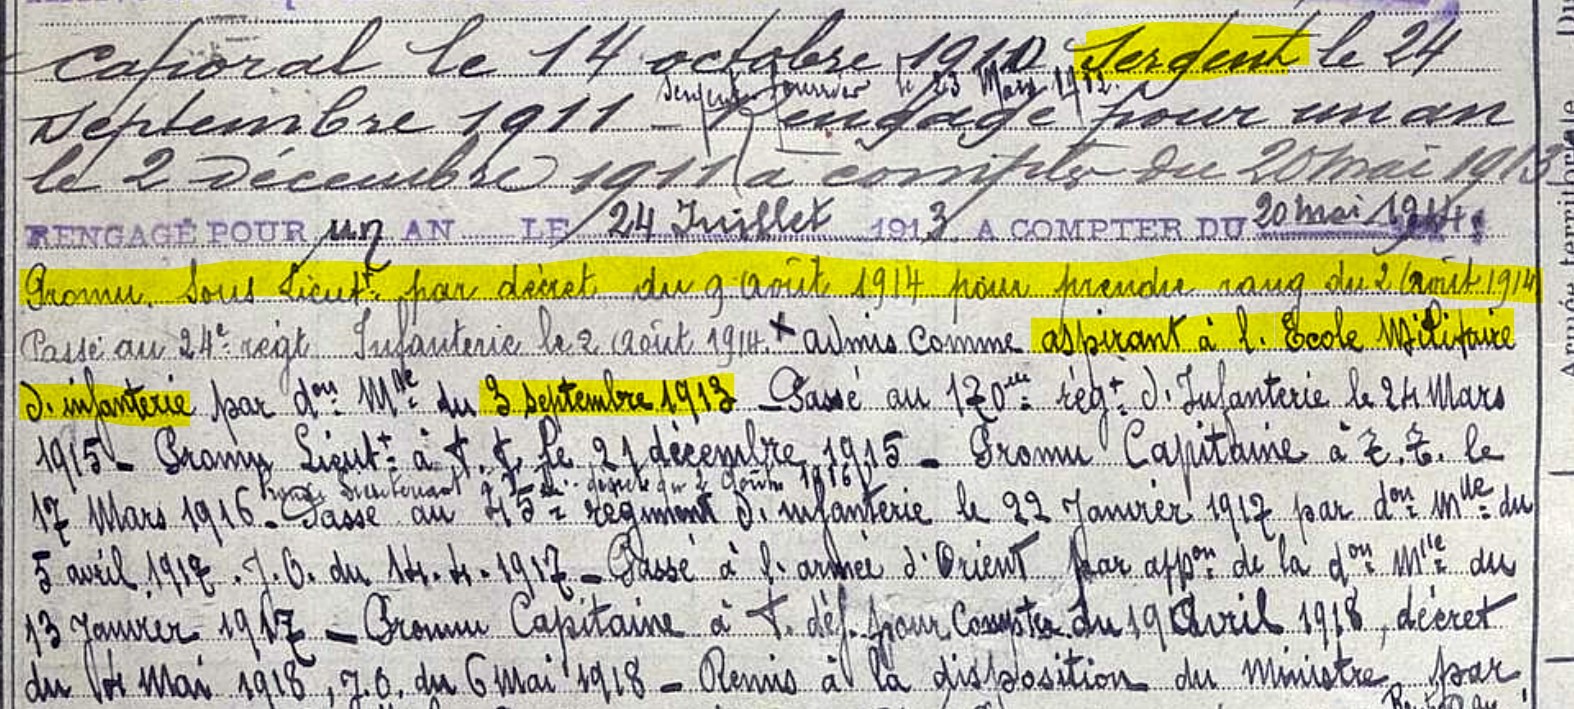 Caporal le 14 octobre 1910 Sergent le 24
Sergent fourrier le 23 Mars 1912.
Septembre 1911 – Rengagé pour un an
le 2 Décembre 1911 à compter du 20 mai 1913
RENGAGÉ POUR un AN LE 24 Juillet 1913 A COMPTER DU 20 mai 1914
Promu Sous Lieutt par décret du 9 Août 1914 pour prendre rang du 2 Août 1914
Passé au 24e régt Infanterie le 2 Août 1914. x admis comme aspirant à l'Ecole Militaire
d'infanterie par don Mlle du 3 septembre 1913 – Passé au 170me régt d'Infanterie le 24 Mars
1915 – Promu Lieutt à T.T. le 21 décembre 1915 – Promu Capitaine à T.T. le
Promu Lieutenant à décret du 2 Août 1916
17 Mars 1916 – Passé au 45e régiment d'infanterie le 22 Janvier 1917 par don Mlle du
5 avril 1917. J.O. du 14.4.1917 – Passé à l'armée d'Orient par appon de la don Mlle du
13 Janvier 1917 – Promu Capitaine à T. déf. pour Compter du 19 Avril 1918, décret
du 4 Mai 1918, J.O. du 6 Mai 1918 – Remis à la disposition du Ministre par
Armée territoriale